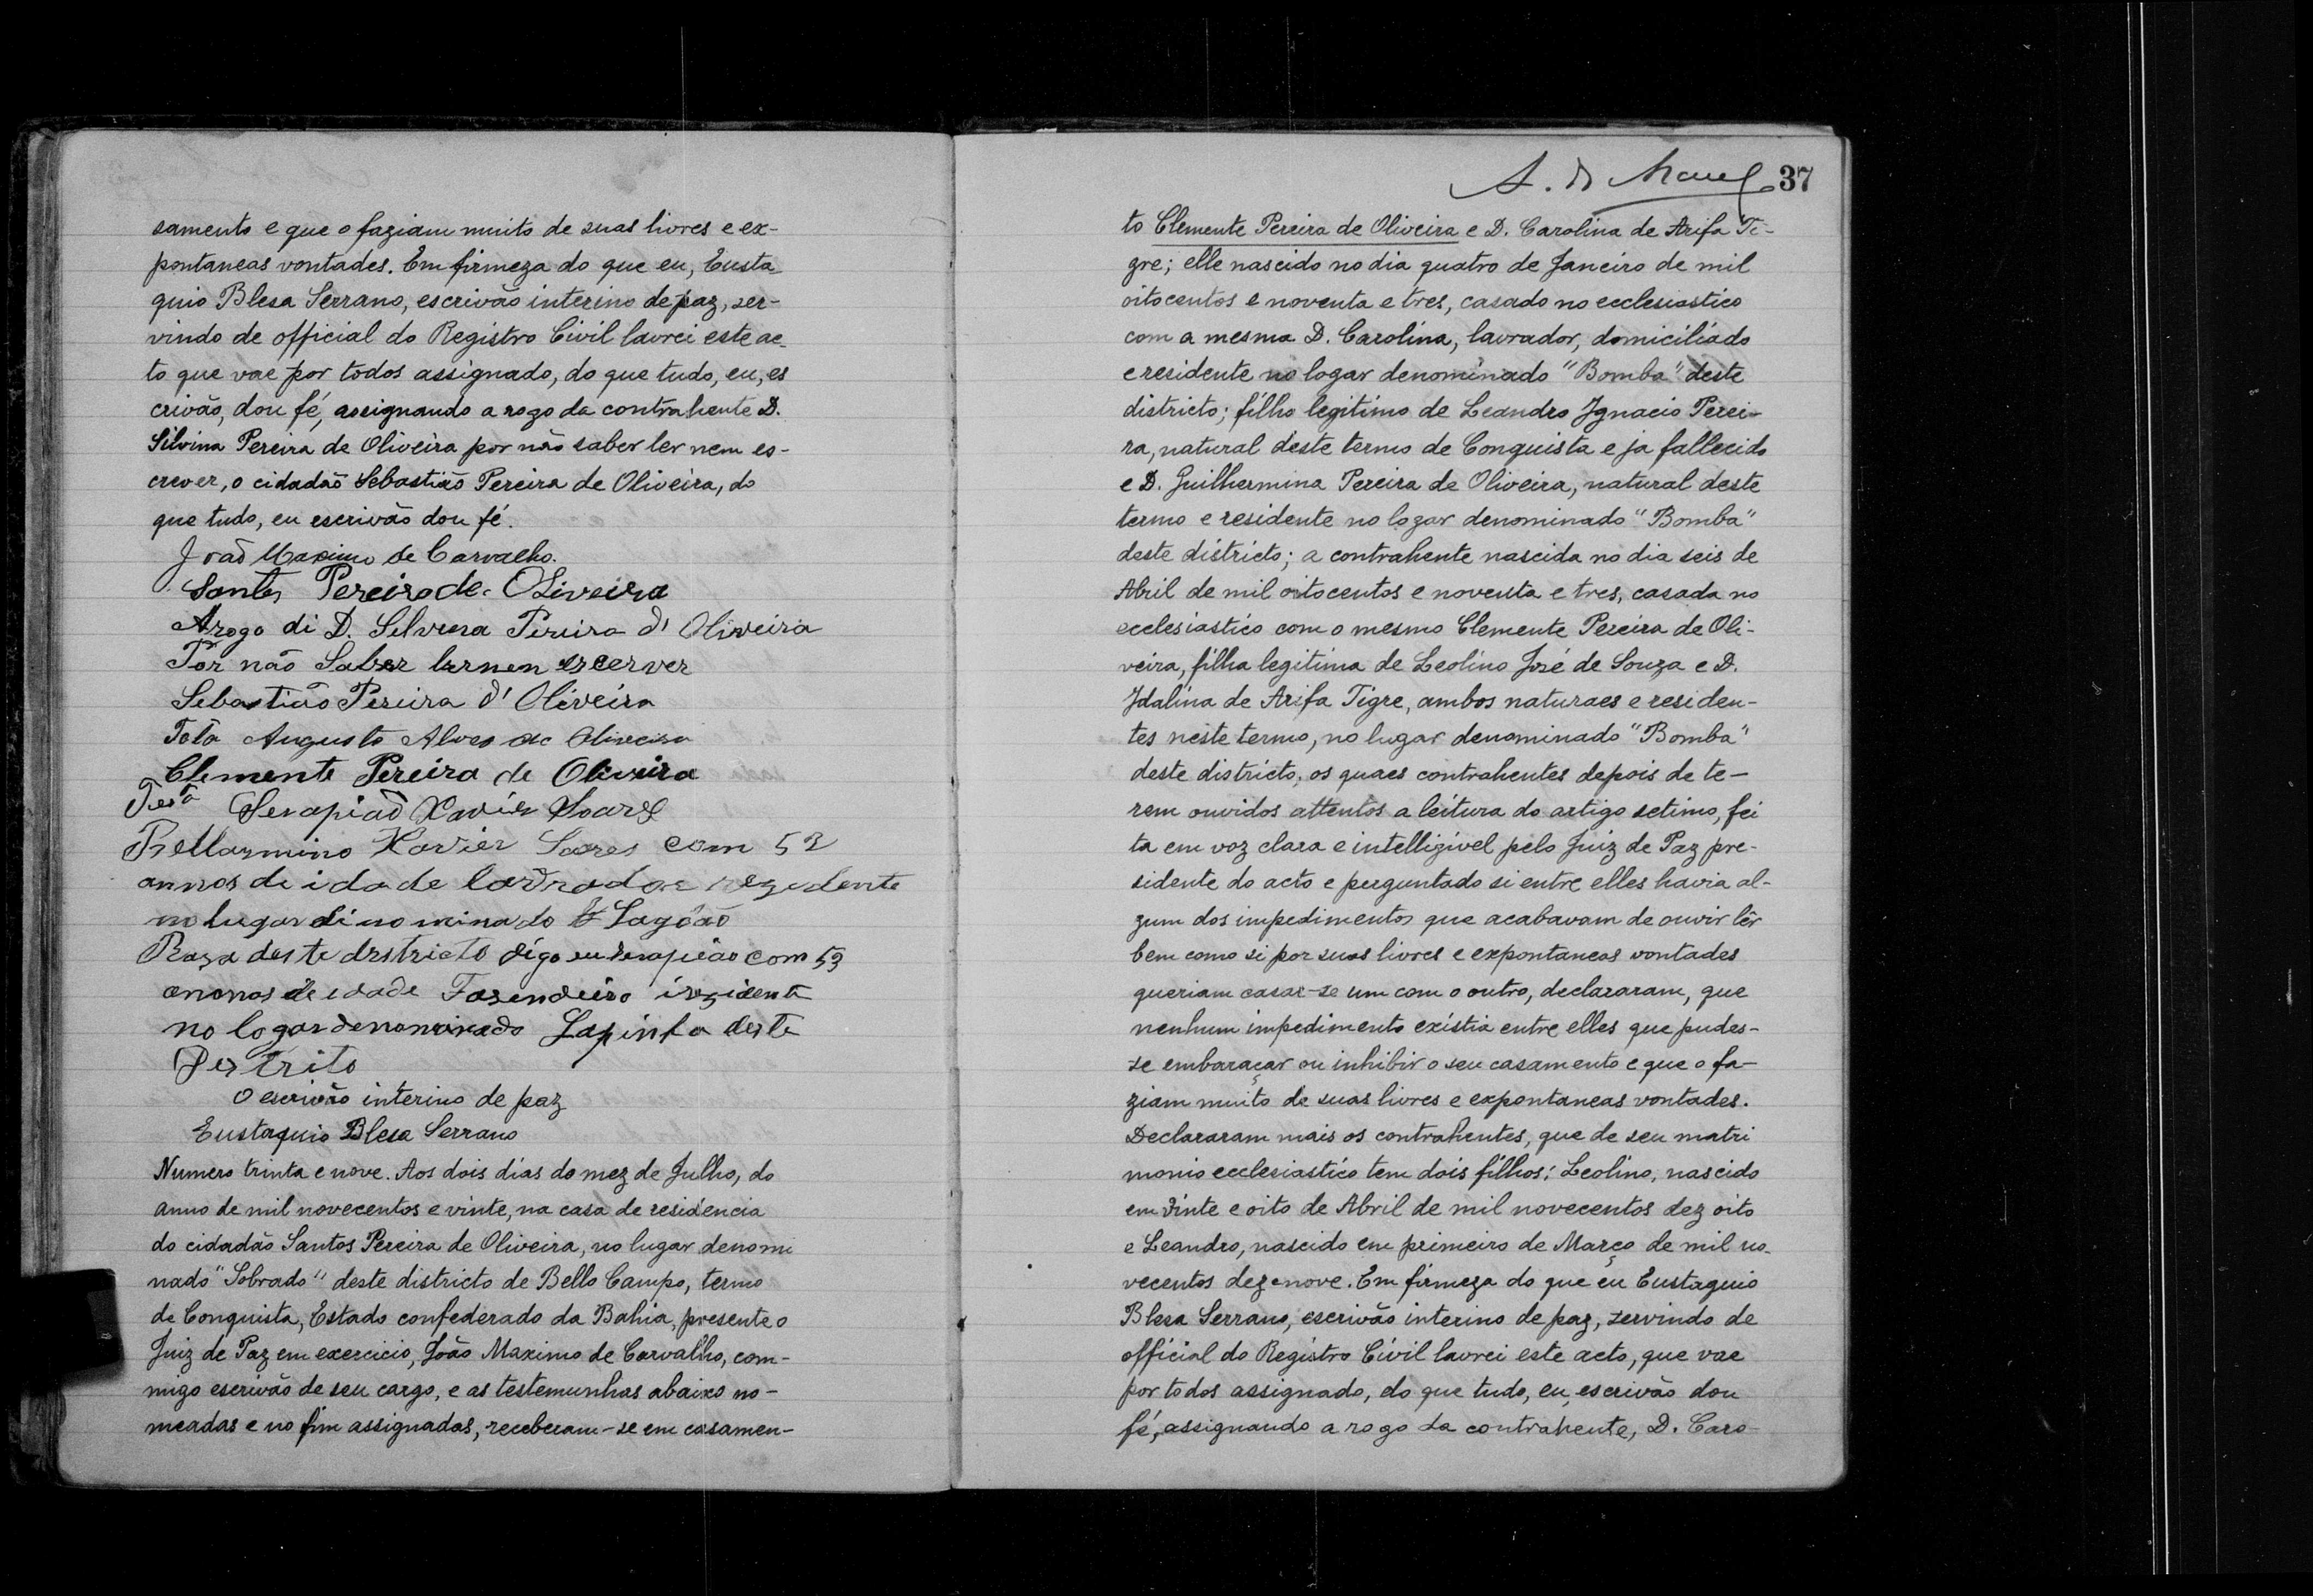 samento e que o faziam muito de suas livres e ex-
pontaneas vontades. Em firmeza do que eu, Eusta
quio Blesa Serrano, escrivão interino de paz, ser-
vindo de official do Registro Civil lavrei este ac-
to que vae por todos assignado, do que tudo, eu, es
crivão, dou fé, assignando a rogo da contrahente D.
Silvina Pereira de Oliveira por não saber ler nem es-
crever, o cidadão Sebastião Pereira de Oliveira, do
que tudo, eu escrivão dou fé.
João Maximo de Carvalho.
Santos Pereira de Oliveira
Arogo di D. Selvina Pereira d'Oliveira
Por não Saber lernem escerver
Sebastião Pereira d'Oliveira
Augusto Alves de Oliveira
Clemente Pereira de Oliveira
Testa Serapião Xavier Soares
Bellarmino Xavier Soares com 52
annos de idade lavrador rezedente
no lugar dinominado Lagôão
Raza deste destricto digo eu serapião com 53
anonos de edade Fazendeiro irezidente
no logar denominado Lapinha deste
Destrito
O escrivão interino de paz
Eustaquio Blesa Serrano
Numero trinta e nove. Aos dois dias do mez de Julho, do
anno de mil novecentos e vinte, na casa de residencia
do cidadão Santos Pereira de Oliveira, no lugar denomi
nado "Sobrado" deste districto de Bello Campo, termo
de Conquista, Estado confederado da Bahia, presente o
Juiz de Paz em exercicio, João Maximo de Carvalho, com-
migo escrivão de seu cargo, e as testemunhas abaixo no-
meadas e no fim assignadas, receberam-se em casamen-
37
to Clemente Pereira de Oliveira e D. Carolina de Arifa Ti-
gre; elle nascido no dia quatro de Janeiro de mil
oitocentos e noventa e tres, casado no ecclesiastico
com a mesma D. Carolina, lavrador, domiciliado
e residente no logar denominado "Bomba" deste
districto; filho legitimo de Leandro Ignacio Perei-
ra, natural deste termo de Conquista e ja fallecido
e D. Guilhermina Pereira de Oliveira, natural deste
termo e residente no logar denominado "Bomba"
deste districto; a contrahente nascida no dia seis de
Abril de mil oitocentos e noventa e tres, casada no
ecclesiastico com o mesmo Clemente Pereira de Oli-
veira, filha legitima de Leolino José de Souza e D.
Idalina de Arifa Tigre, ambos naturaes e residen-
tes neste termo, no lugar denominado "Bomba"
deste districto, os quaes contrahentes depois de te-
rem ouvidos attentos a leitura do artigo setimo, fei
ta em voz clara e intelligivel pelo Juiz de Paz pre-
sidente do acto e perguntado si entre elles havia al-
gum dos impedimentos que acabavam de ouvir lêr
bem como si por suas livres e expontaneas vontades
queriam casar-se um com o outro, declararam, que
nenhum impedimento existia entre elles que pudes-
se embaraçar ou inhibir o seu casamento e que o fa-
ziam muito de suas livres e expontaneas vontades.
Declararam mais os contrahentes, que de seu matri
monio ecclesiastico tem dois filhos: Leolino, nascido
em vinte e oito de Abril de mil novecentos dez oito
e Leandro, nascido em primeiro de Março de mil no-
vecentos dezenove. Em firmeza do que eu Eustaquio
Blesa Serrano, escrivão interino de paz, servindo de
official do Registro Civil lavrei este acto, que vae
por todos assignado, do que tudo, eu, escrivão dou
fé, assignando a rogo da contrahente, D. Caro-